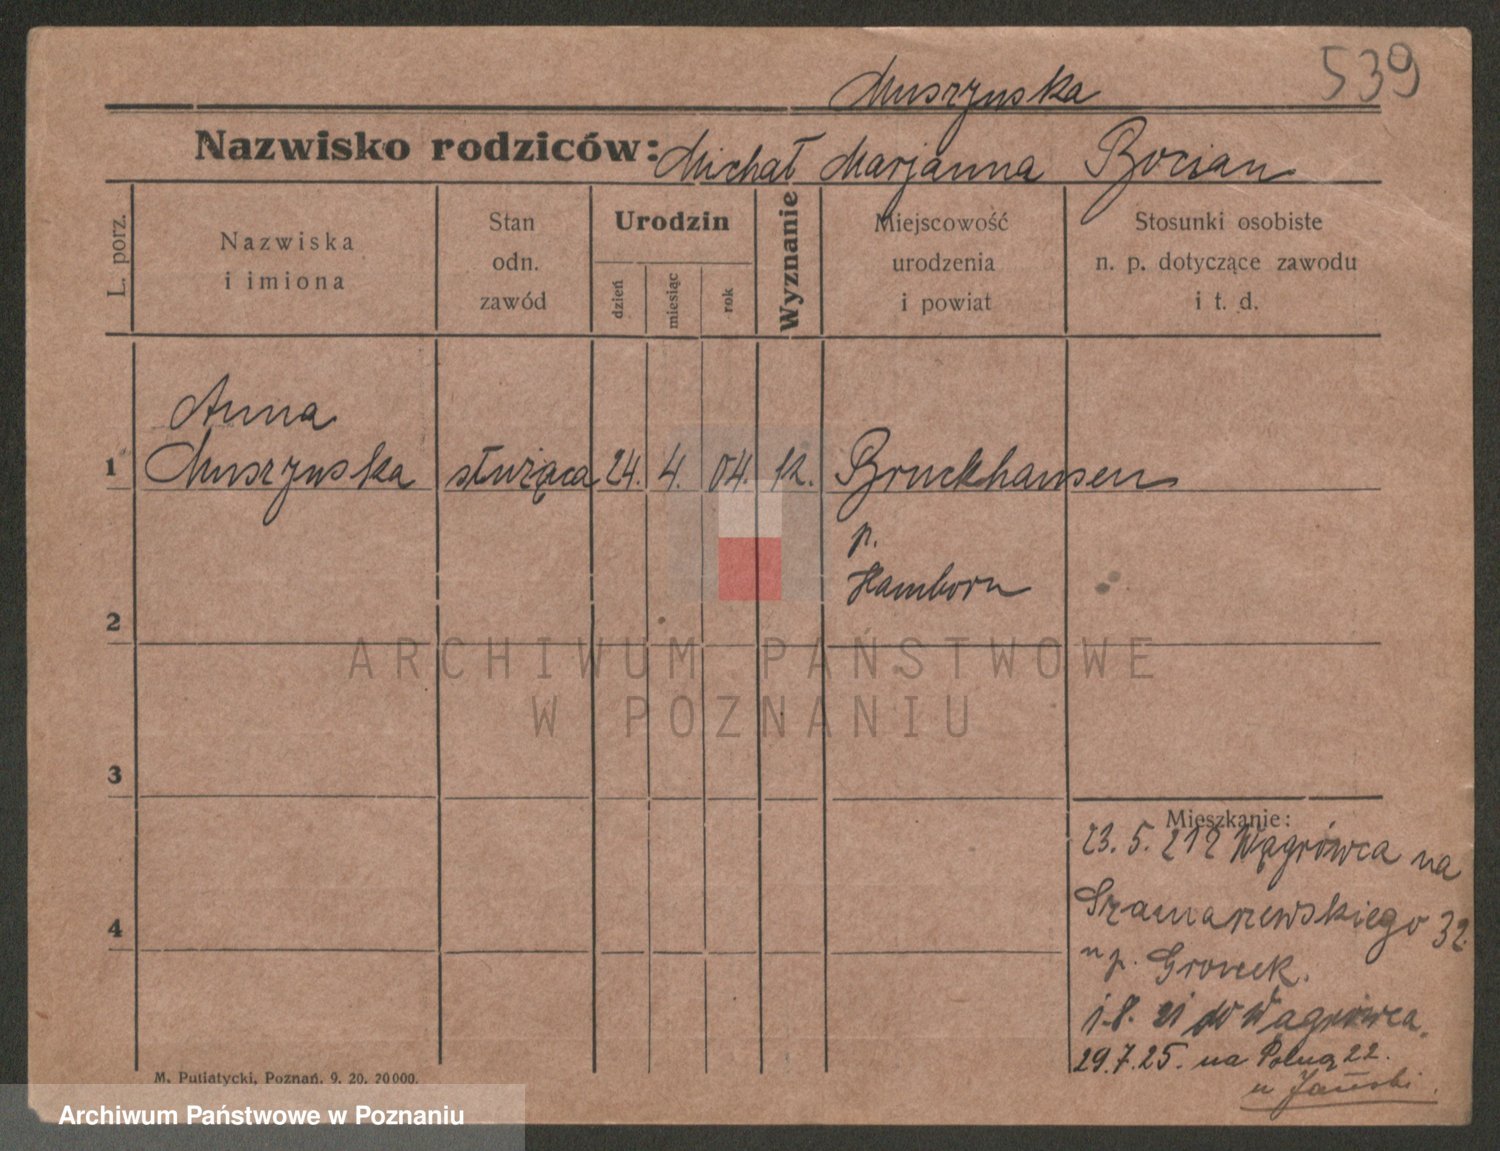 539
Muszynska
Nazwisko rodziców: Michał Marjanna Bocian
L. porz.
Nazwiska
i imiona
Stan
odn.
zawód
Urodzin
dzień
miesiąc
rok
Wyznanie
Miejscowość
urodzenia
i powiat
Stosunki osobiste
n. p. dotyczące zawodu
i t. d.
Anna
1 Muszynska służąca 24. 4. 04. k. Bruckhausen
p.
Hamborn
2
ARCHIWUM PAŃSTWOWE
W POZNANIU
3
Mieszkanie:
23. 5. 21 z Wągrówca na
Szamarzewskiego 32.
u p.
4
1.8. 21 do Wągrówca.
29.7.25. na Polną 22.
u Jański.
M. Putiatycki, Poznań. 9. 20. 20000.
Archiwum Państwowe w Poznaniu